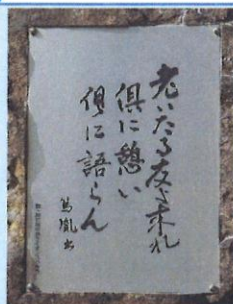 老いたる友よ来れ
倶に憩い
倶に語らん